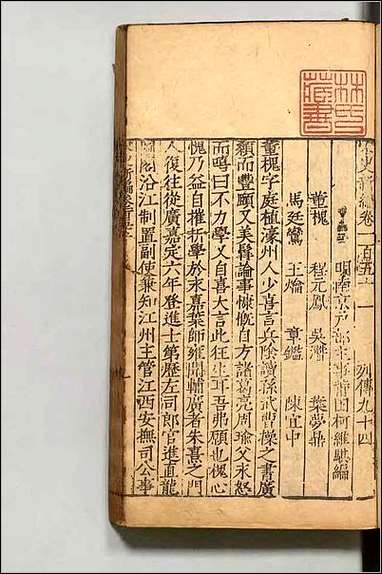 林氏藏書
宋史新編卷一百五十一 列傳九十四
明南京戶部主事莆田柯維騏編
董槐 程元鳳 吳潛 葉夢鼎
馬廷鸞 王爚 章鑑 陳宜中
董槐字庭植濠州人少喜言兵陰讀孫武曹操之書廣
額而豐頤又美髯論事慷慨自方諸葛亮周瑜父永怒
而嗚曰不力學又自喜大言此狂生耳吾弗願也槐心
愧乃益自摧折學於永嘉葉師雍聞輔廣者朱熹之門
人復往從廣嘉定六年登進士第歷左司郎官進直龍
圖閣沿江制置副使兼知江州主管江西安撫司公事